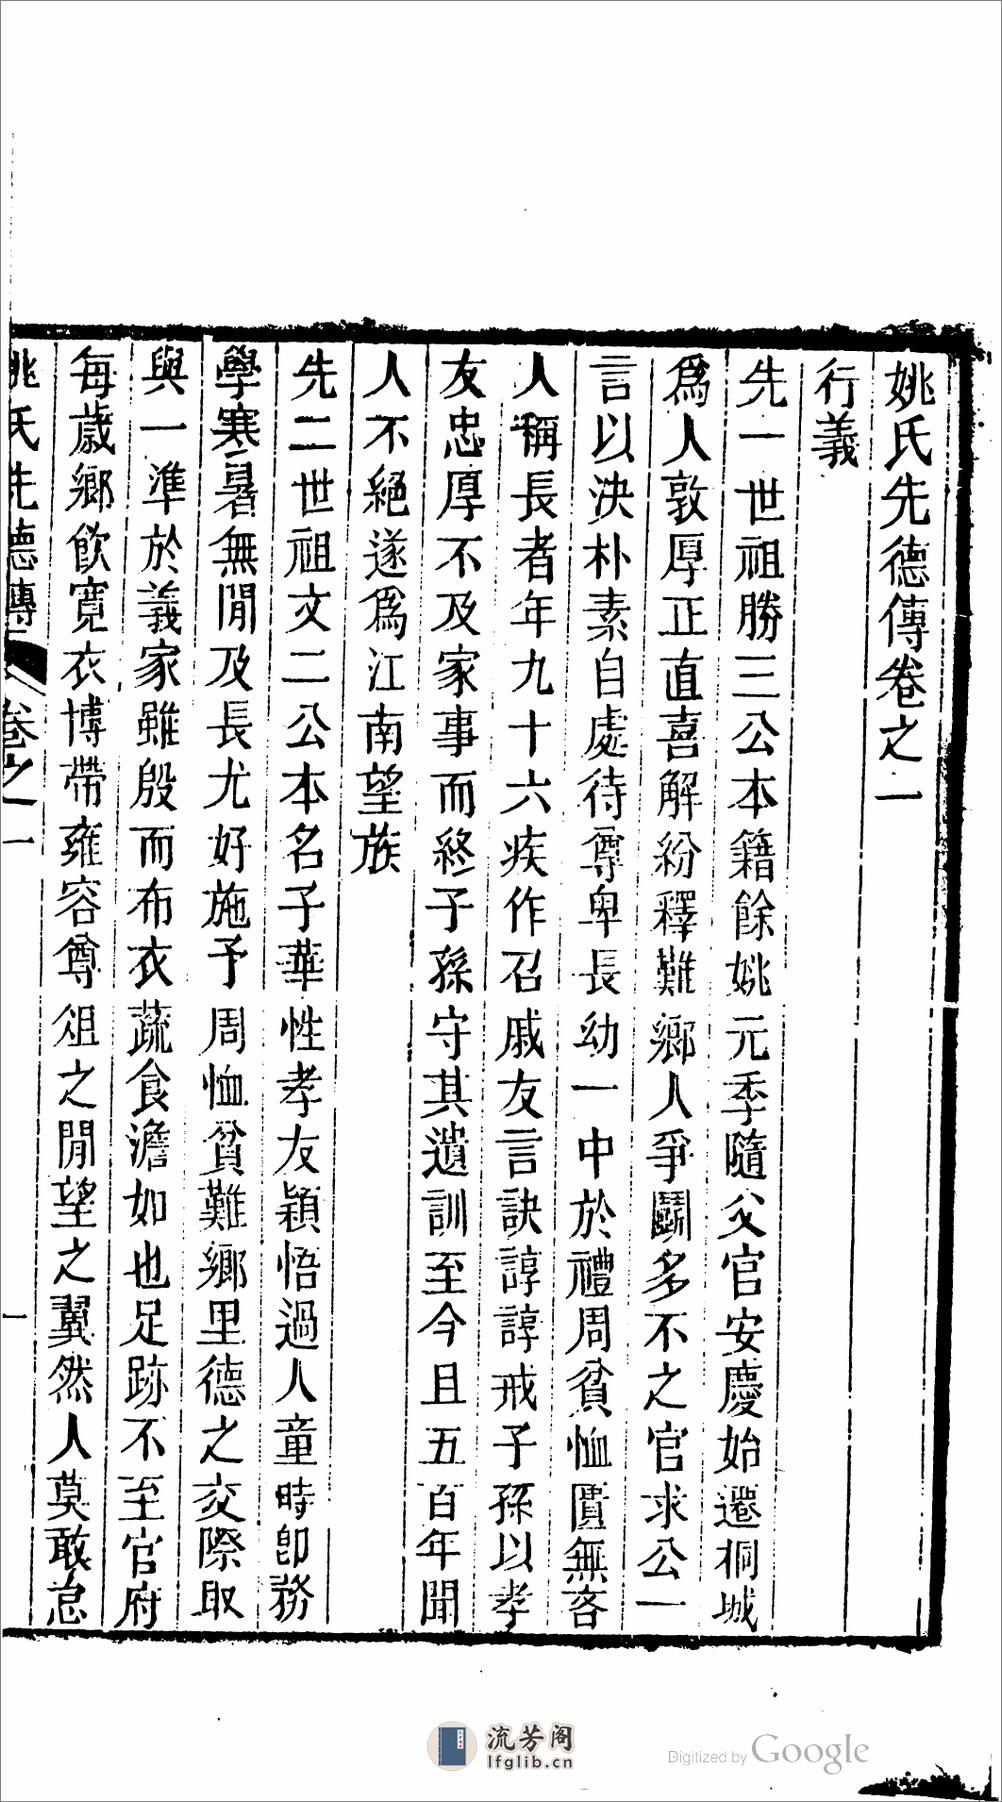 姚氏先德傳卷之一
行義
先一世祖勝三公本籍餘姚元季隨父官安慶始遷桐城
爲人敦厚正直喜解紛釋難鄉人爭鬭多不之官求公一
言以決朴素自處待尊卑長幼一中於禮周貧恤匱無吝
人稱長者年九十六疾作召戚友言訣諄諄戒子孫以孝
友忠厚不及家事而終子孫守其遺訓至今且五百年聞
人不絕遂爲江南望族
先二世祖文二公本名子華性孝友穎悟過人童時卽務
學寒暑無閒及長尤好施予周恤貧難鄉里德之交際取
與一準於義家雖殷而布衣蔬食澹如也足跡不至官府
每歲鄉飲寬衣博帶雍容尊俎之閒望之翼然人莫敢怠
姚氏先德傳 卷之一 一
流芳阁
lfglib.cn
Digitized by Google